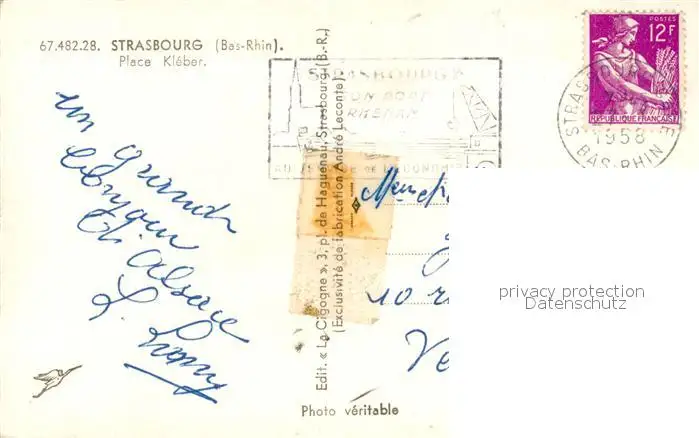 67.482.28. STRASBOURG (Bas-Rhin).
Place Kléber.
un grand
bonjour
d'Alsace
L.
Edit. « La Cigogne », 3, pl. de Haguenau, Strasbourg. (B.-R.)
(Exclusivité de fabrication André Leconte)
STRASBOURG
SON PORT
RHENAN
AU SERVICE DE L'ECONOMIE
POSTES
12F
REPUBLIQUE FRANÇAISE
STRASBOURG
1958
BAS-RHIN
10 r
Ve
privacy protection
Datenschutz
Photo véritable